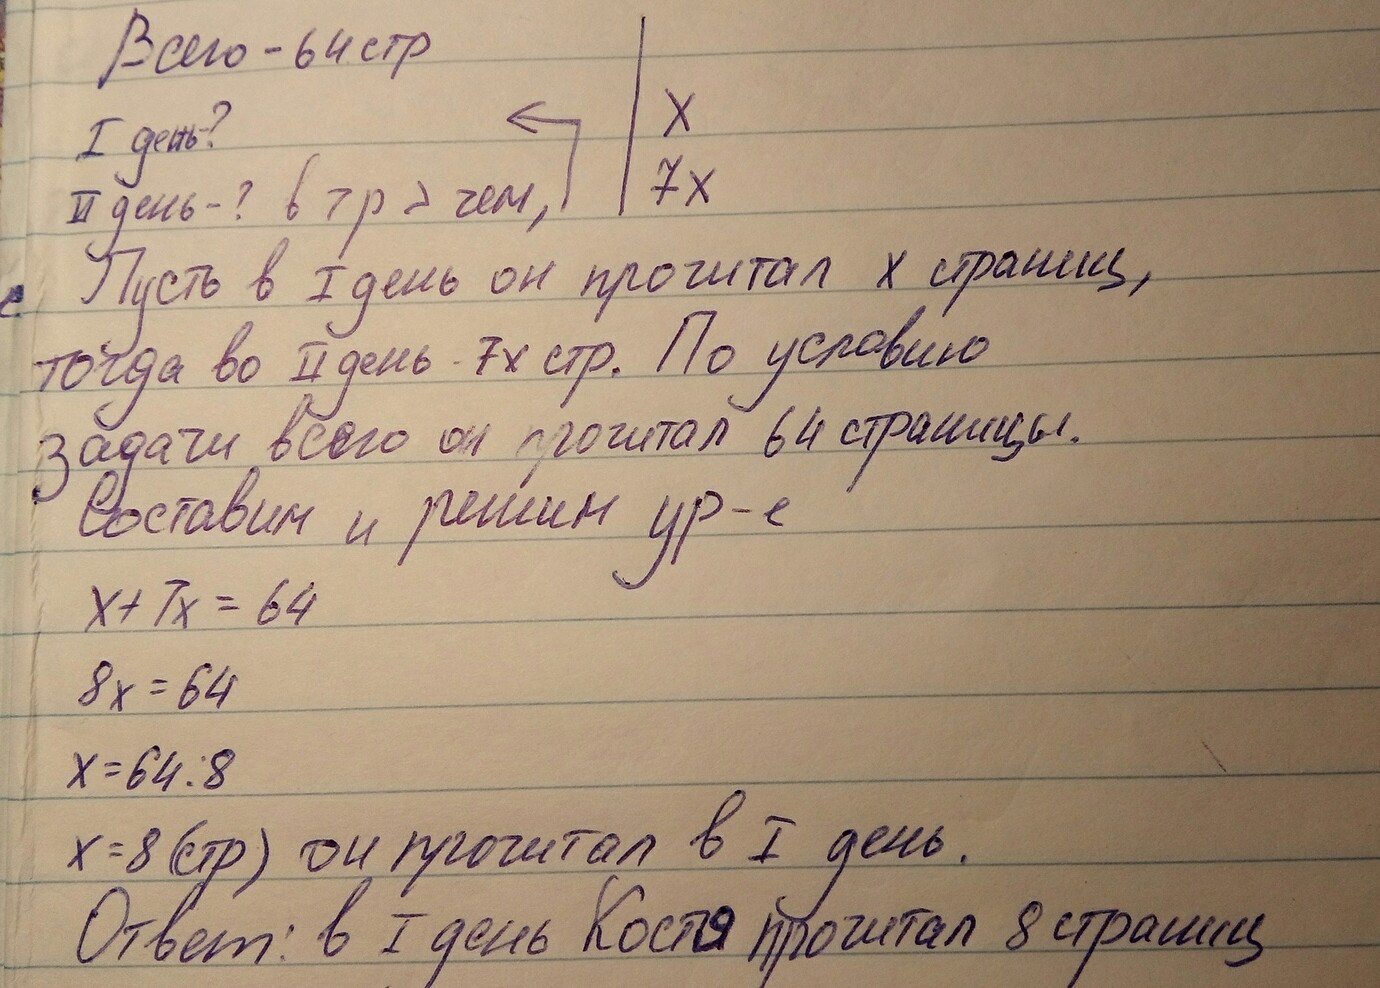 Всего - 64 стр
I день-?
X
II день-? в 7 р > чем,
7x
Пусть в I день он прочитал x страниц,
тогда во II день - 7x стр. По условию
задачи всего он прочитал 64 страницы.
Составим и решим ур-е
x + 7x = 64
8x = 64
x = 64:8
x = 8 (стр) он прочитал в I день.
Ответ: в I день Костя прочитал 8 страниц